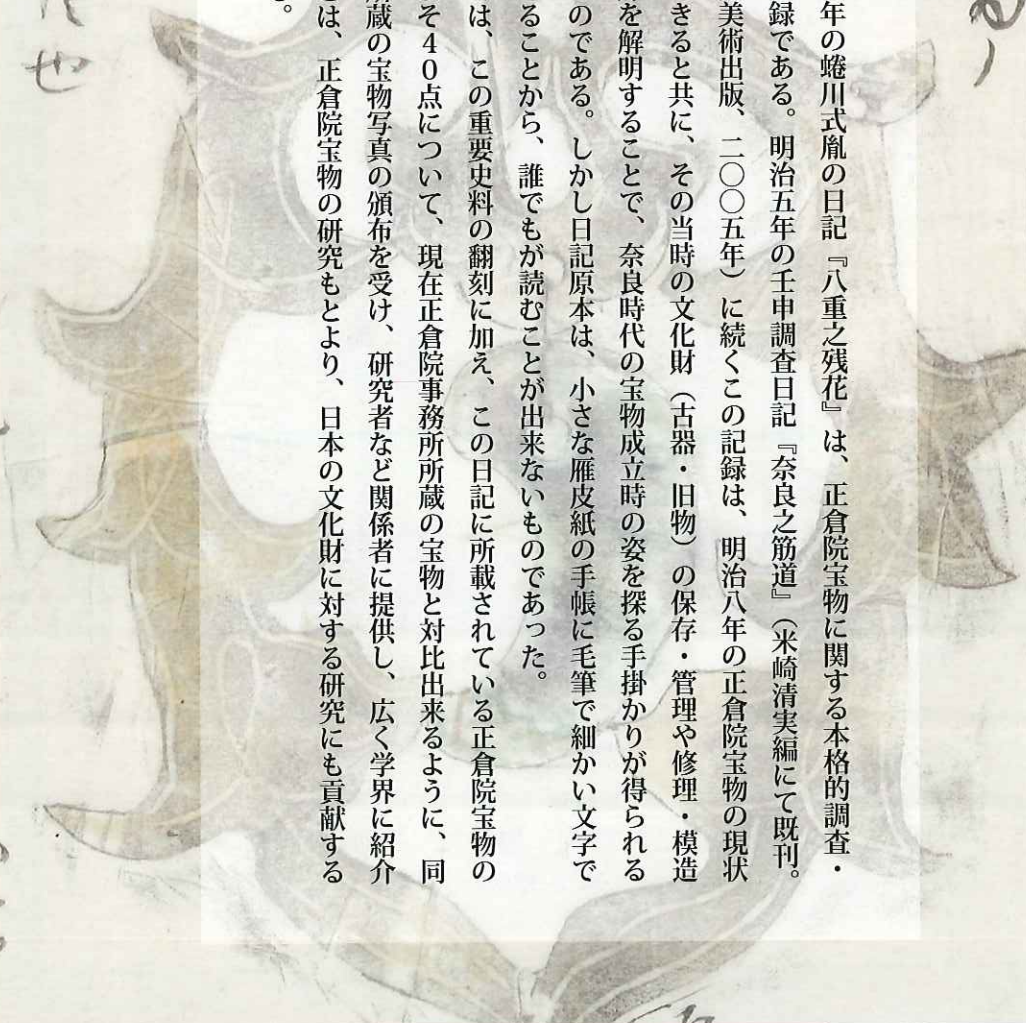 年の蜷川式胤の日記『八重之残花』は、正倉院宝物に関する本格的調査・
録である。明治五年の壬申調査日記『奈良之筋道』（米崎清実編にて既刊。
美術出版、二〇〇五年）に続くこの記録は、明治八年の正倉院宝物の現状
きると共に、その当時の文化財（古器・旧物）の保存・管理や修理・模造
を解明することで、奈良時代の宝物成立時の姿を探る手掛かりが得られる
のである。しかし日記原本は、小さな雁皮紙の手帳に毛筆で細かい文字で
ることから、誰でもが読むことが出来ないものであった。
は、この重要史料の翻刻に加え、この日記に所載されている正倉院宝物の
そ４０点について、現在正倉院事務所所蔵の宝物と対比出来るように、同
蔵の宝物写真の頒布を受け、研究者など関係者に提供し、広く学界に紹介
は、正倉院宝物の研究もとより、日本の文化財に対する研究にも貢献する
。
也